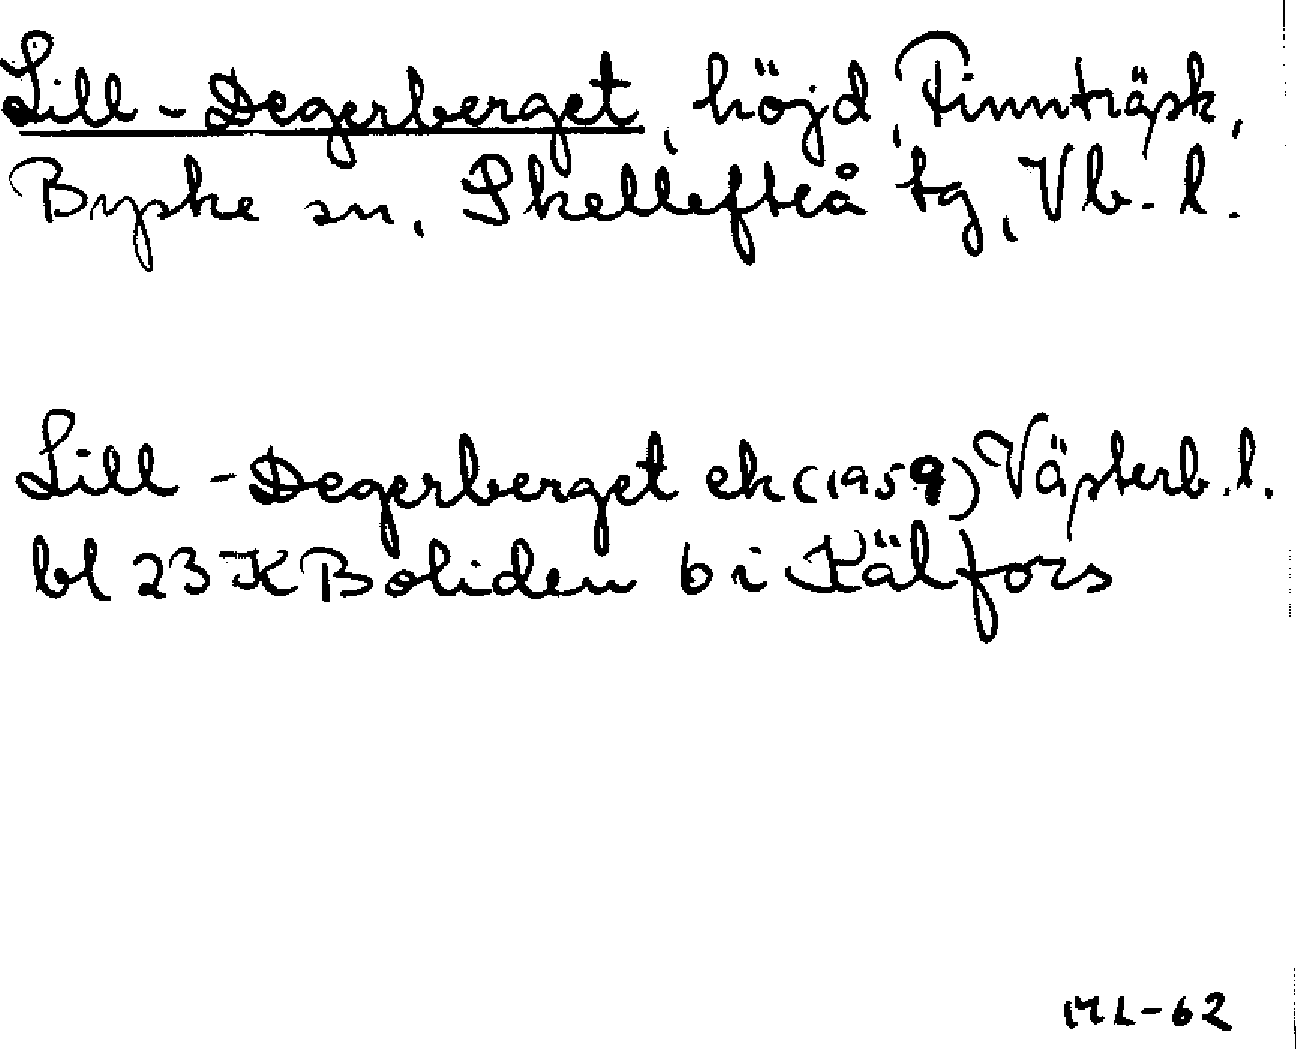 Lill-Degerberget, höjd, Finnträsk,
Byske sn, Skellefteå tg, Vb. l.
Lill-Degerberget ek (1959) Västerb. l.
bl 23 K Boliden b i Källfors
ML-62